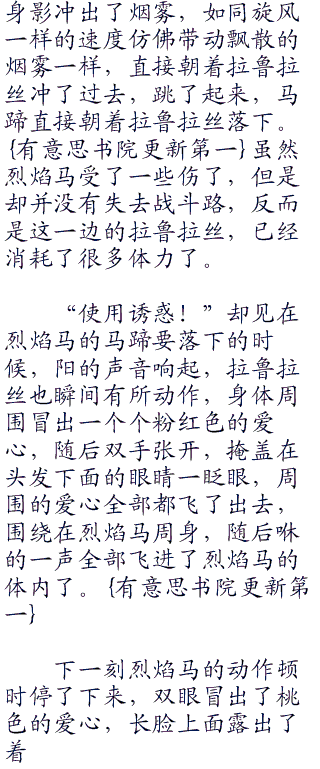 身影冲出了烟雾，如同旋风
一样的速度仿佛带动飘散的
烟雾一样，直接朝着拉鲁拉
丝冲了过去，跳了起来，马
蹄直接朝着拉鲁拉丝落下。
{有意思书院更新第一}虽然
烈焰马受了一些伤了，但是
却并没有失去战斗路，反而
是这一边的拉鲁拉丝，已经
消耗了很多体力了。
“使用诱惑！”却见在
烈焰马的马蹄要落下的时
候，阳的声音响起，拉鲁拉
丝也瞬间有所动作，身体周
围冒出一个个粉红色的爱
心，随后双手张开，掩盖在
头发下面的眼睛一眨眼，周
围的爱心全部都飞了出去，
围绕在烈焰马周身，随后咻
的一声全部飞进了烈焰马的
体内了。{有意思书院更新第
一}
下一刻烈焰马的动作顿
时停了下来，双眼冒出了桃
色的爱心，长脸上面露出了
着